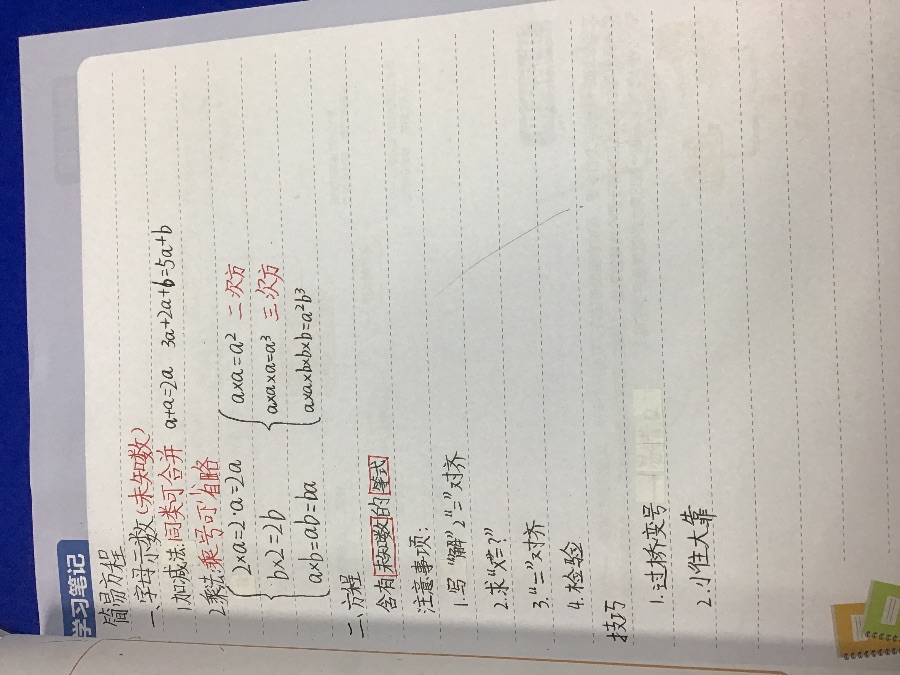 学习笔记
简易方程
一、字母示数(未知数)
1.加减法:同类可合并 a+a=2a 3a+2a+b=5a+b
2.乘法:乘号可省略
2×a=2·a=2a
b×2=2b
a×b=ab=ba
a×a=a² 二次方
a×a×a=a³ 三次方
a×a×b×b×b=a²b³
二、方程
含有未知数的等式
注意事项:
1.写“解”2“=”对齐
2.求“x=?”
3.“=”对齐
4.检验
技巧
1.过桥变号
2.小住大靠